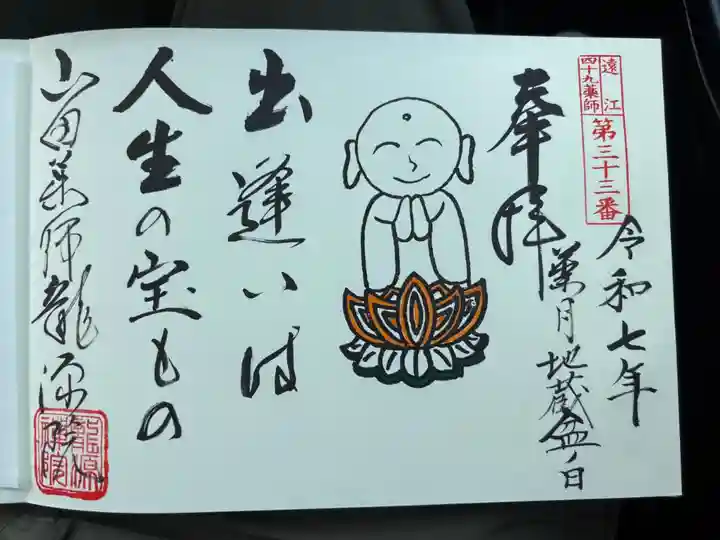 遠江
四十九薬師
第三十三番
令和七年
葉月地蔵盆ノ日
奉拝
出逢いは
人生の宝もの
山田薬師龍源院
龍源院